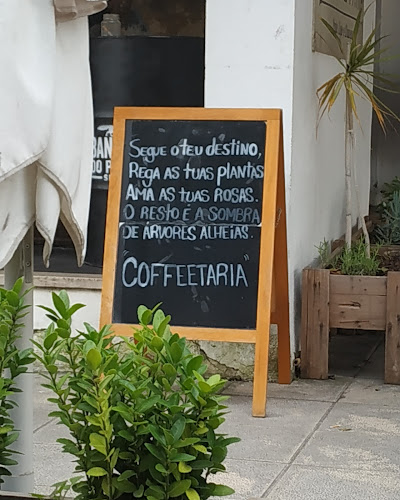 Segue o teu destino,
Rega as tuas plantas
Ama as tuas rosas.
O resto é a sombra
de árvores alheias.
"Coffeetaria"